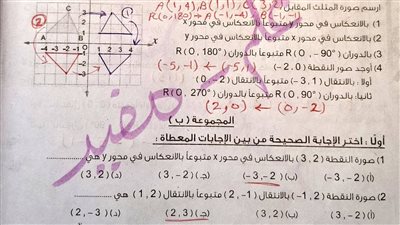 ارسم صورة المثلث المقابل A(1,4) B(1,1) C(3,2)
R(0,180°) → A(-1,-4) B(-1,-1)
1) بالانعكاس في محور y متبوعاً بالانعكاس في محور x
2) بالانعكاس في محور y
3) بالدوران R(0, -90°) متبوعاً بالدوران R(0, 180°)
4) أوجد صورة النقطة (-5, -4) ← (-5, -1)
أولاً: بالانعكاس (-1, 3) متبوعاً بالانتقال (-2, 0)
ثانياً: بالدوران R(0, 90°) متبوعاً بالدوران R(0, 270°)
(2,0) ← (0,-2)
المجموعة (ب)
أولاً: اختر الإجابة الصحيحة من بين الإجابات المعطاة:
1) صورة النقطة (3, 2) بالانعكاس في محور x متبوعاً بالانعكاس في محور y هي
(أ) (3, -2) (ب) (-3, -2) (جـ) (-3, 2) (د) (3, 2)
2) صورة النقطة (1, -2) بالانتقال (2, -1) متبوعاً بالانتقال (1, 2) هي
(أ) (-3, 2) (ب) (3, 2) (جـ) (2, 3) (د) (2, -3)